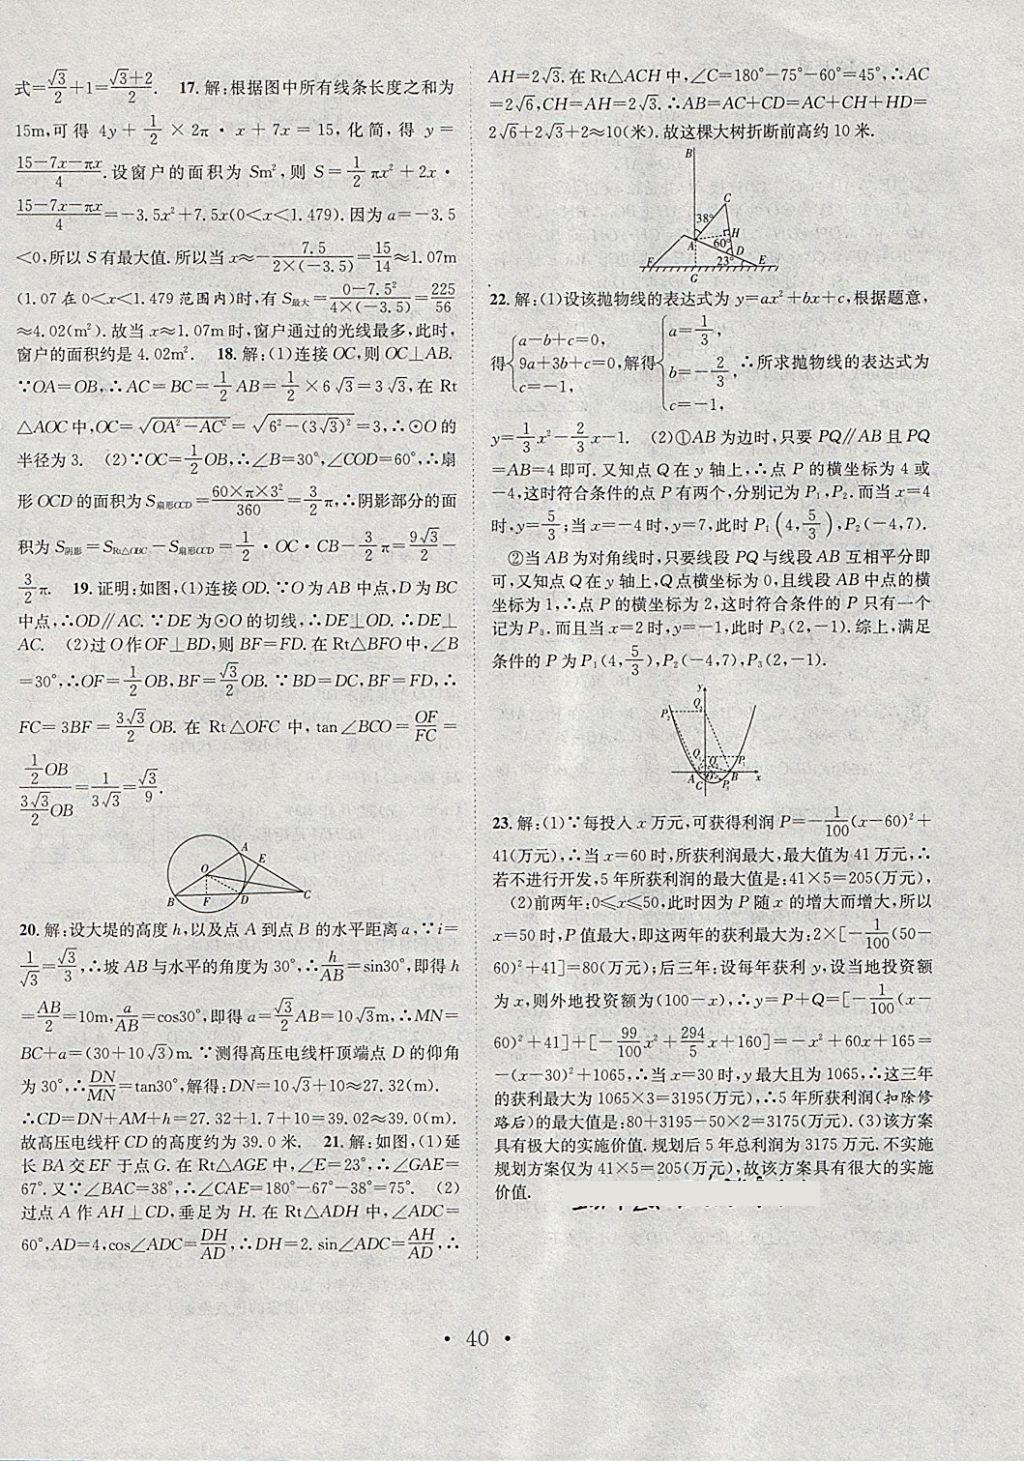 式=√3/2+1=(√3+2)/2. 17.解:根据图中所有线条长度之和为
15m,可得 4y+1/2×2π·x+7x=15,化简,得 y=
(15-7x-πx)/4.设窗户的面积为 Sm²,则 S=1/2πx²+2x·
(15-7x-πx)/4=-3.5x²+7.5x(0<x<1.479).因为a=-3.5
<0,所以S有最大值.所以当x≈-7.5/(2×(-3.5))=15/14≈1.07m
(1.07在0<x<1.479范围内)时,有S最大=(0-7.5²)/(4×(-3.5))=225/56
≈4.02(m²).故当x≈1.07m时,窗户通过的光线最多,此时,
窗户的面积约是4.02m². 18.解:(1)连接OC,则OC⊥AB.
∵OA=OB,∴AC=BC=1/2AB=1/2×6√3=3√3,在Rt
△AOC中,OC=√(OA²-AC²)=√(6²-(3√3)²)=3,∴⊙O的
半径为3. (2)∵OC=1/2OB,∴∠B=30°,∠COD=60°,∴扇
形OCD的面积为S扇形OCD=(60×π×3²)/360=3/2π,∴阴影部分的面
积为S阴影=SRt△OBC-S扇形OCD=1/2·OC·CB-3/2π=9√3/2-
3/2π. 19.证明:如图,(1)连接OD.∵O为AB中点,D为BC
中点,∴OD∥AC.∵DE为⊙O的切线,∴DE⊥OD.∴DE⊥
AC. (2)过O作OF⊥BD,则BF=FD.在Rt△BFO中,∠B
=30°,∴OF=1/2OB,BF=√3/2OB.∵BD=DC,BF=FD,∴
FC=3BF=3√3/2OB.在Rt△OFC中,tan∠BCO=OF/FC=
(1/2OB)/(3√3/2OB)=1/(3√3)=√3/9.
A
E
O
B
F
D
C
20.解:设大堤的高度h,以及点A到点B的水平距离a,∵i=
1/√3=√3/3,∴坡AB与水平的角度为30°,∴h/AB=sin30°,即得h
=AB/2=10m,a/AB=cos30°,即得a=√3/2AB=10√3m,∴MN=
BC+a=(30+10√3)m.∵测得高压电线杆顶端点D的仰角
为30°,∴DN/MN=tan30°,解得:DN=10√3+10≈27.32(m).
∴CD=DN+AM+h=27.32+1.7+10=39.02≈39.0(m).
故高压电线杆CD的高度约为39.0米. 21.解:如图,(1)延
长BA交EF于点G.在Rt△AGE中,∠E=23°,∴∠GAE=
67°.又∵∠BAC=38°,∴∠CAE=180°-67°-38°=75°. (2)
过点A作AH⊥CD,垂足为H.在Rt△ADH中,∠ADC=
60°,AD=4,cos∠ADC=DH/AD,∴DH=2.sin∠ADC=AH/AD,∴
AH=2√3.在Rt△ACH中,∠C=180°-75°-60°=45°,∴AC
=2√6,CH=AH=2√3.∴AB=AC+CD=AC+CH+HD=
2√6+2√3+2≈10(米).故这棵大树折断前高约10米.
B
C
38°
H
A
60°
D
23°
F
G
E
22.解:(1)设该抛物线的表达式为y=ax²+bx+c,根据题意,
得{a-b+c=0, 9a+3b+c=0, c=-1, 解得{a=1/3, b=-2/3, c=-1, ∴所求抛物线的表达式为
y=1/3x²-2/3x-1. (2)①AB为边时,只要PQ∥AB且PQ
=AB=4即可.又知点Q在y轴上,∴点P的横坐标为4或
-4,这时符合条件的点P有两个,分别记为P₁,P₂.而当x=4
时,y=5/3;当x=-4时,y=7,此时P₁(4,5/3),P₂(-4,7).
②当AB为对角线时,只要线段PQ与线段AB互相平分即
可,又知点Q在y轴上,Q点横坐标为0,且线段AB中点的横
坐标为1,∴点P的横坐标为2,这时符合条件的P只有一个
记为P₃.而且当x=2时,y=-1,此时P₃(2,-1).综上,满足
条件的P为P₁(4,5/3),P₂(-4,7),P₃(2,-1).
y
P₂
Q₂
Q₁
P₁
A
O
B
x
C
P₃
23.解:(1)∵每投入x万元,可获得利润P=-1/100(x-60)²+
41(万元),∴当x=60时,所获利润最大,最大值为41万元,∴
若不进行开发,5年所获利润的最大值是:41×5=205(万元),
(2)前两年:0≤x≤50,此时因为P随x的增大而增大,所以
x=50时,P值最大,即这两年的获利最大为:2×[-1/100(50-
60)²+41]=80(万元);后三年:设每年获利y,设当地投资额
为x,则外地投资额为(100-x),∴y=P+Q=[-1/100(x-
60)²+41]+[-99/100x²+294/5x+160]=-x²+60x+165=
-(x-30)²+1065,∴当x=30时,y最大且为1065,∴这三年
的获利最大为1065×3=3195(万元),∴5年所获利润(扣除修
路后)的最大值是:80+3195-50×2=3175(万元).(3)该方案
具有极大的实施价值.规划后5年总利润为3175万元.不实施
规划方案仅为41×5=205(万元),故该方案具有很大的实施
价值.
·40·